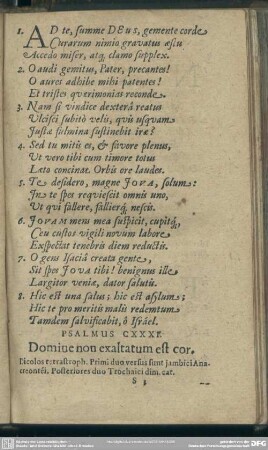 1. AD te, summe DEus, gemente corde
Curarum nimio gravatus æstu
Accedo miser, atq; clamo supplex.
2. O audi gemitus, Pater, precantes!
O aures adhibe mihi patentes!
Et tristes qverimonias reconde.
3. Nam si vindice dexterâ reatus
Ulcisci subitò velis, qvis usqvam
Justæ fulmina sustinebit iræ?
4. Sed tu mitis es, & favore plenus,
Ut vero tibi cum timore totus
Læta concinat Orbis ore laudes.
5. Te desidero, magne JOVA, solum:
In te spes reqviescit omnis uno,
Ut qui fallere, falliq; nescis.
6. JOVAM mens mea suspicit, cupitq;
Ceu custos vigili novum labore
Exspectat tenebris diem reductis.
7. O gens Isaciâ creata gente,
Sit spes JOVA tibi! benignus ille
Largitor veniæ, dator salutis.
8. Hic est una salus; hic est asylum;
Hic te pro meritis malis redemtum
Tamdem salvificabit, ô Israël.
PSALMUS CXXXI.
Domine non exaltatum est cor.
Dicolos tetrastroph. Primi duo versus sunt Jambici Ana-
creontei. Posteriores duo Trochaici dim. cat.
S